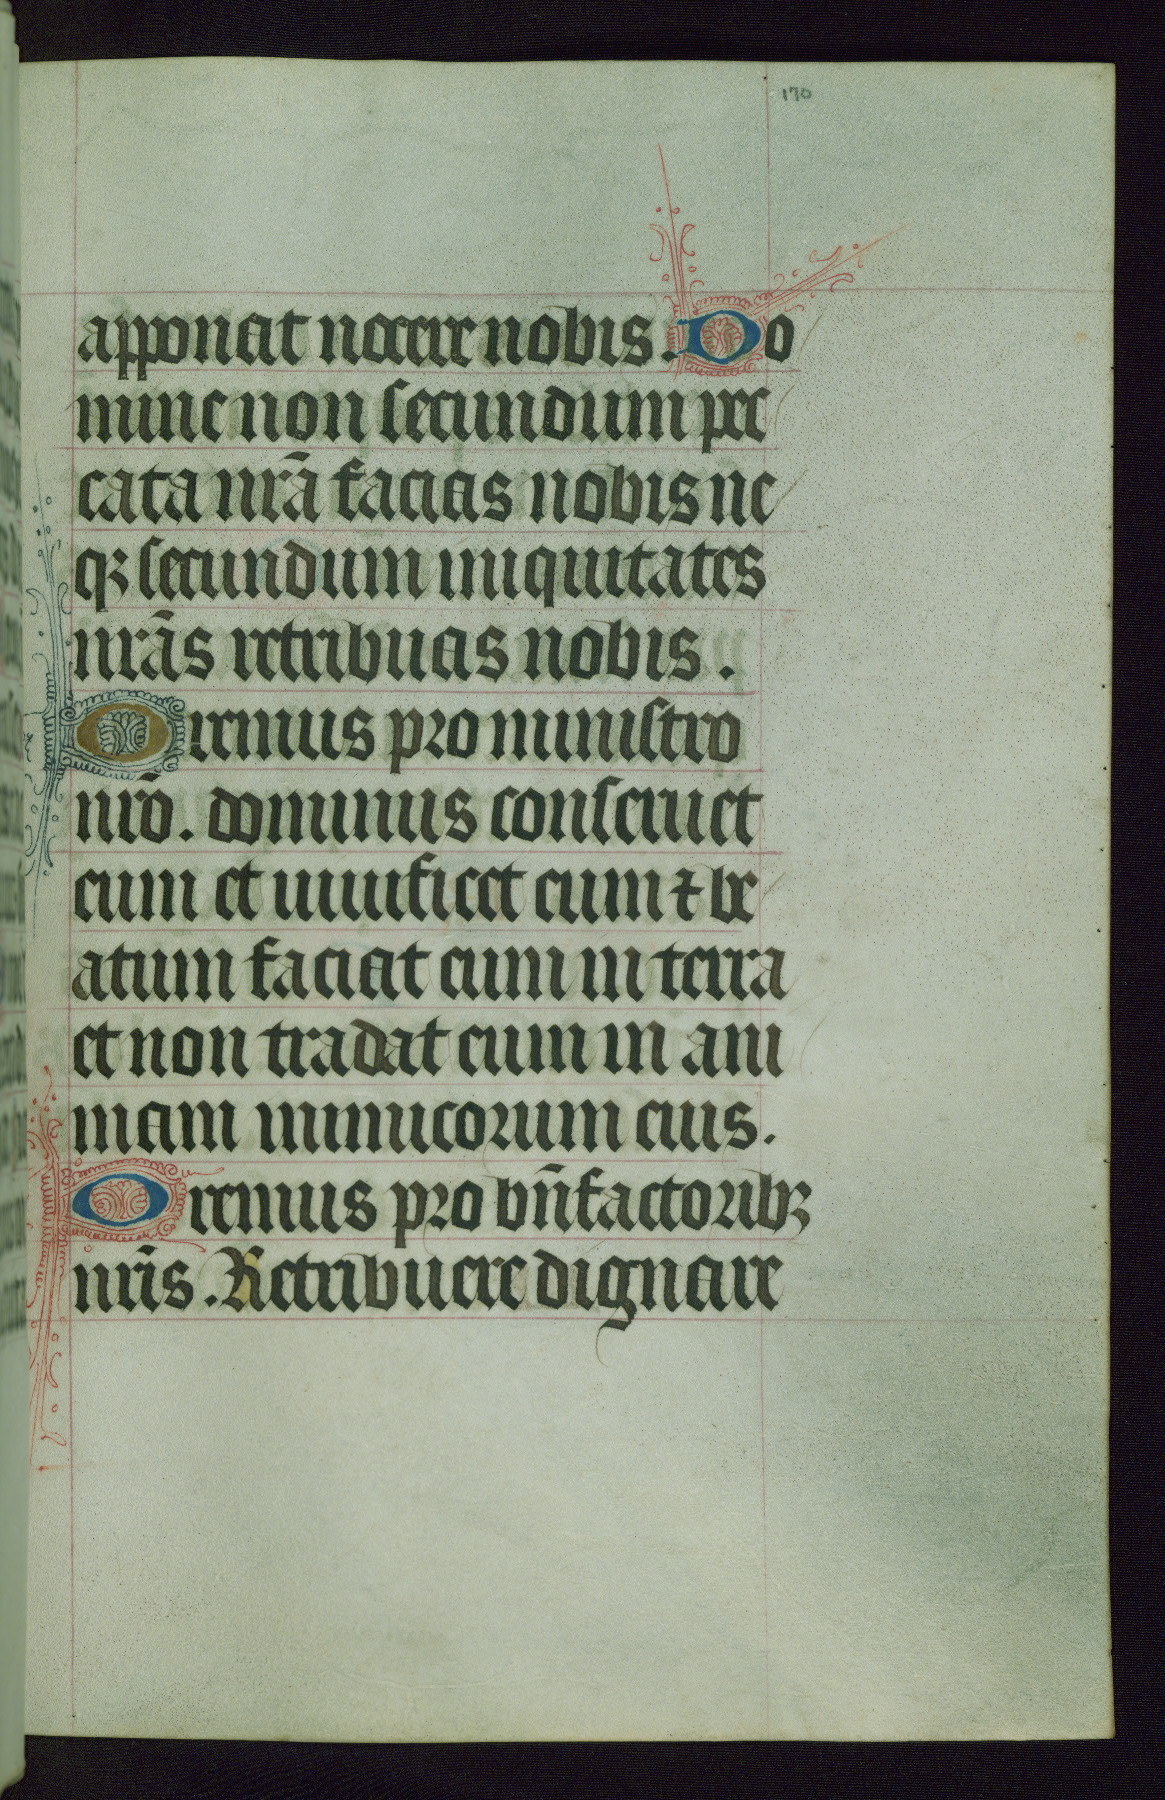 170
apponat nocere nobis. Do
mine non secundum pec
cata nr̃a facias nobis ne
qꝫ secundum iniquitates
nr̃as retribuas nobis.
Oremus pro ministro
nr̃o. dominus conseruet
eum et uiuificet eum ⁊ be
atum faciat eum in terra
et non tradat eum in ani
mam inimicorum eius.
Oremus pro bñfactoribꝫ
nr̃is. Retribuere dignare